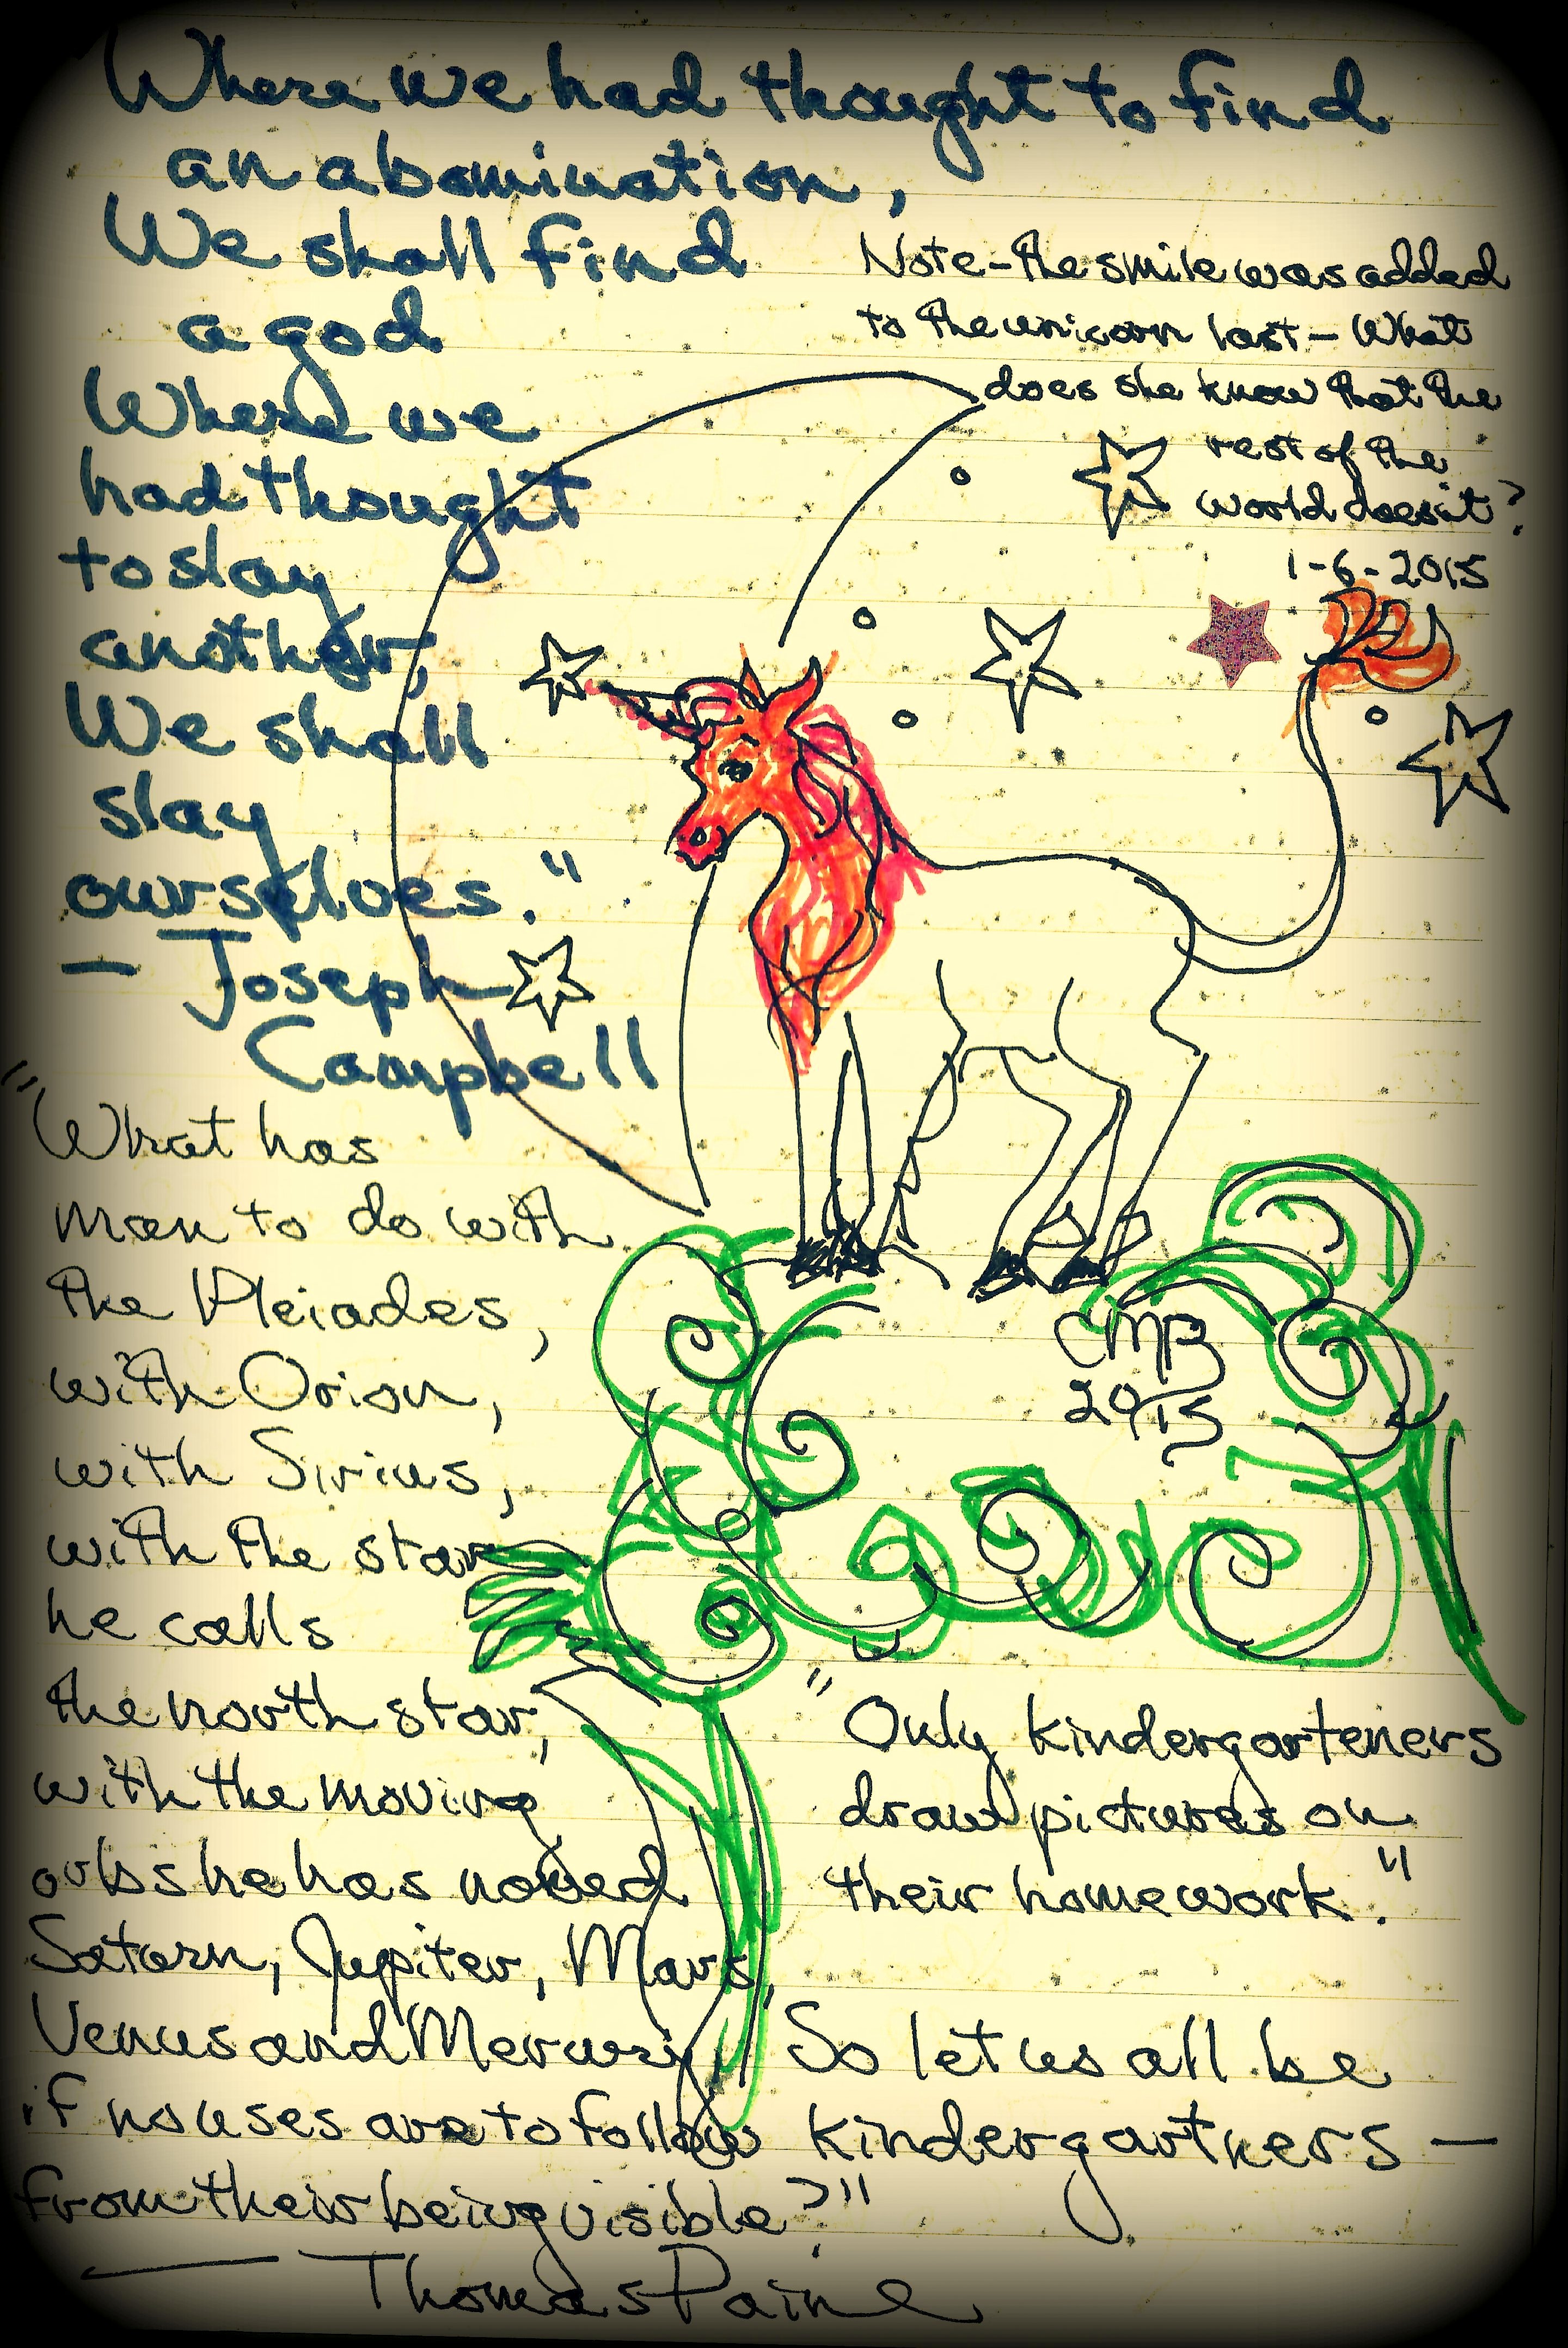 Where we had thought to find
an abomination,
We shall find
a god
Where we
had thought
to slay
another,
We shall
slay
ourselves."
— Joseph
Campbell
Note - the smile was added
to the unicorn last - What
does she know that the
rest of the
world doesn't?
1-6-2015
"What has
man to do with
the Pleiades,
with Orion,
with Sirius,
with the star
he calls
the north star,
with the moving
orbs he has named
Saturn, Jupiter, Mars,
Venus and Mercury,
if no uses are to follow
from their being visible?"
— Thomas Paine
CMB
2015
"Only kindergarteners
draw pictures on
their homework."
So let us all be
kindergartners —